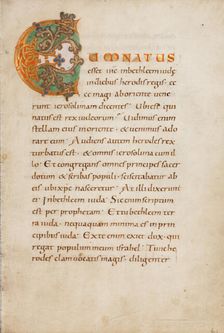 CUM NATUS
esset ihc inbethleem iudę
indiebus herodis regis · ecce
magi aboriente venerunt
ierosolimam dicentes · Ubi est qui
natus est rex iudeorum · Uidimus enim
stellam eius inoriente · & uenimus adorare
eum · Audiens autem herodes rex
turbatus est · & omnis ierosolima cum illo ·
Et congregans omnes principes sacerdotum
& scribas populi · sciscitabatur ab
eis ubi xpc nasceretur · At illi dixerunt
ei · Inbethleem iudę · Sic enim scriptum
est per prophetam · Et tu bethleem terra
iuda · nequaquam minima es in principibus
iuda · Ex te enim exiet dux · qui
regat populum meum israhel · Tunc herodes
clam uocatis magis · diligenter